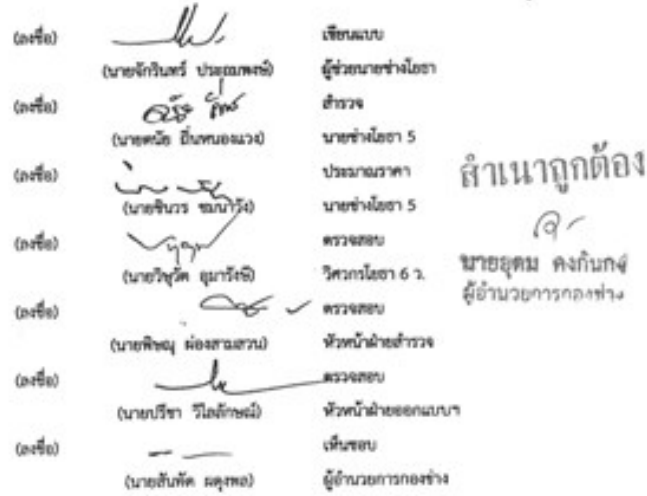 (ลงชื่อ) เขียนแบบ
(นายจักรินทร์ ประถมพงษ์) ผู้ช่วยนายช่างโยธา
(ลงชื่อ) สำรวจ
(นายดนัย ถิ่นหนองแวง) นายช่างโยธา 5
(ลงชื่อ) ประมาณราคา
(นายชินวร ชมนาวัง) นายช่างโยธา 5
(ลงชื่อ) ตรวจสอบ
(นายวิษุวัต อุมารังษี) วิศวกรโยธา 6 ว.
(ลงชื่อ) ตรวจสอบ
(นายพิษณุ ผ่องสามสวน) หัวหน้าฝ่ายสำรวจ
(ลงชื่อ) ตรวจสอบ
(นายปรีชา วิไลลักษณ์) หัวหน้าฝ่ายออกแบบฯ
(ลงชื่อ) เห็นชอบ
(นายสันทัด ผดุงพล) ผู้อำนวยการกองช่าง
สำเนาถูกต้อง
นายอุดม
ผู้อำนวยการกองช่าง